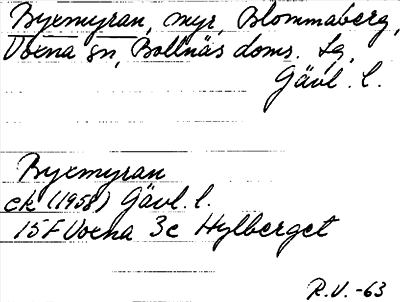 Byxmyran, myr, Blommaberg,
Voxna sn, Bollnäs doms. sg,
Gävl. l.
Byxmyran
ek (1958) Gävl. l.
15F Voxna 3c Hylberget
R.V. -63